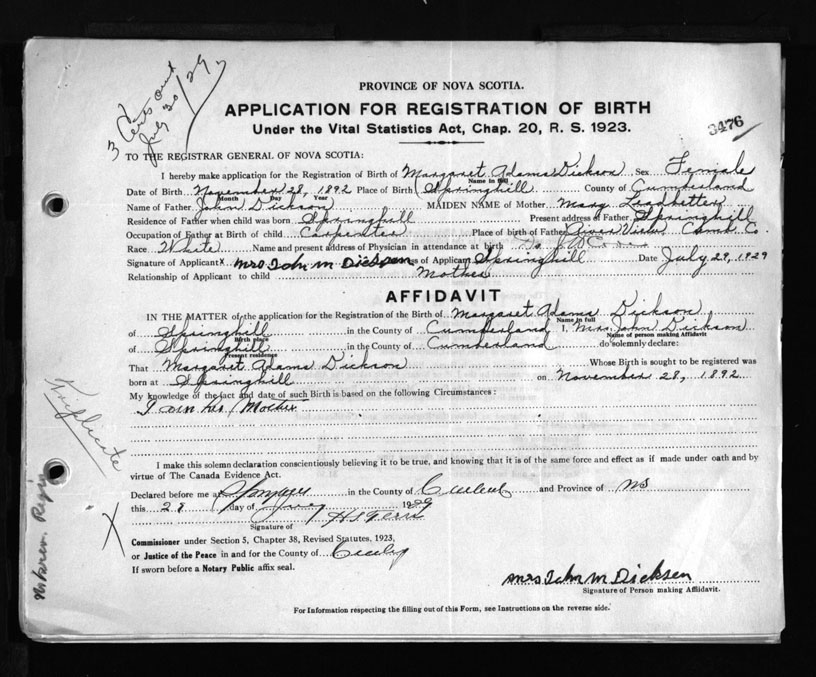 3 Certs out
July 30/29
PROVINCE OF NOVA SCOTIA.
APPLICATION FOR REGISTRATION OF BIRTH
Under the Vital Statistics Act, Chap. 20, R. S. 1923.
3476
TO THE REGISTRAR GENERAL OF NOVA SCOTIA:
I hereby make application for the Registration of Birth of Margaret Adams Dickson Sex Female
Name in full
Date of Birth November 28, 1892 Place of Birth Springhill County of Cumberland
Month Day Year
Name of Father John Dickson MAIDEN NAME of Mother Mary Leadbetter
Residence of Father when child was born Springhill Present address of Father Springhill
Occupation of Father at Birth of child Carpenter Place of birth of Father River View Cumb. Co.
Race White Name and present address of Physician in attendance at birth
Signature of Applicant x Mrs John M Dickson Address of Applicant Springhill Date July 29, 1929
Relationship of Applicant to child Mother
AFFIDAVIT
IN THE MATTER of the application for the Registration of the Birth of Margaret Adams Dickson
Name in full
of Springhill in the County of Cumberland I, Mrs. John Dickson
Birth place Name of person making Affidavit
of Springhill in the County of Cumberland do solemnly declare:
Present residence
That Margaret Adams Dickson Whose Birth is sought to be registered was
born at Springhill on November 28, 1892
My knowledge of the fact and date of such Birth is based on the following Circumstances:
I am her Mother
Triplicate
I make this solemn declaration conscientiously believing it to be true, and knowing that it is of the same force and effect as if made under oath and by
virtue of The Canada Evidence Act.
Declared before me at in the County of and Province of NS
this 28 day of July 1929
Signature of
X
Commissioner under Section 5, Chapter 38, Revised Statutes, 1923,
or Justice of the Peace in and for the County of
If sworn before a Notary Public affix seal.
Mrs John M Dicksen
Signature of Person making Affidavit.
For Information respecting the filling out of this Form, see Instructions on the reverse side.